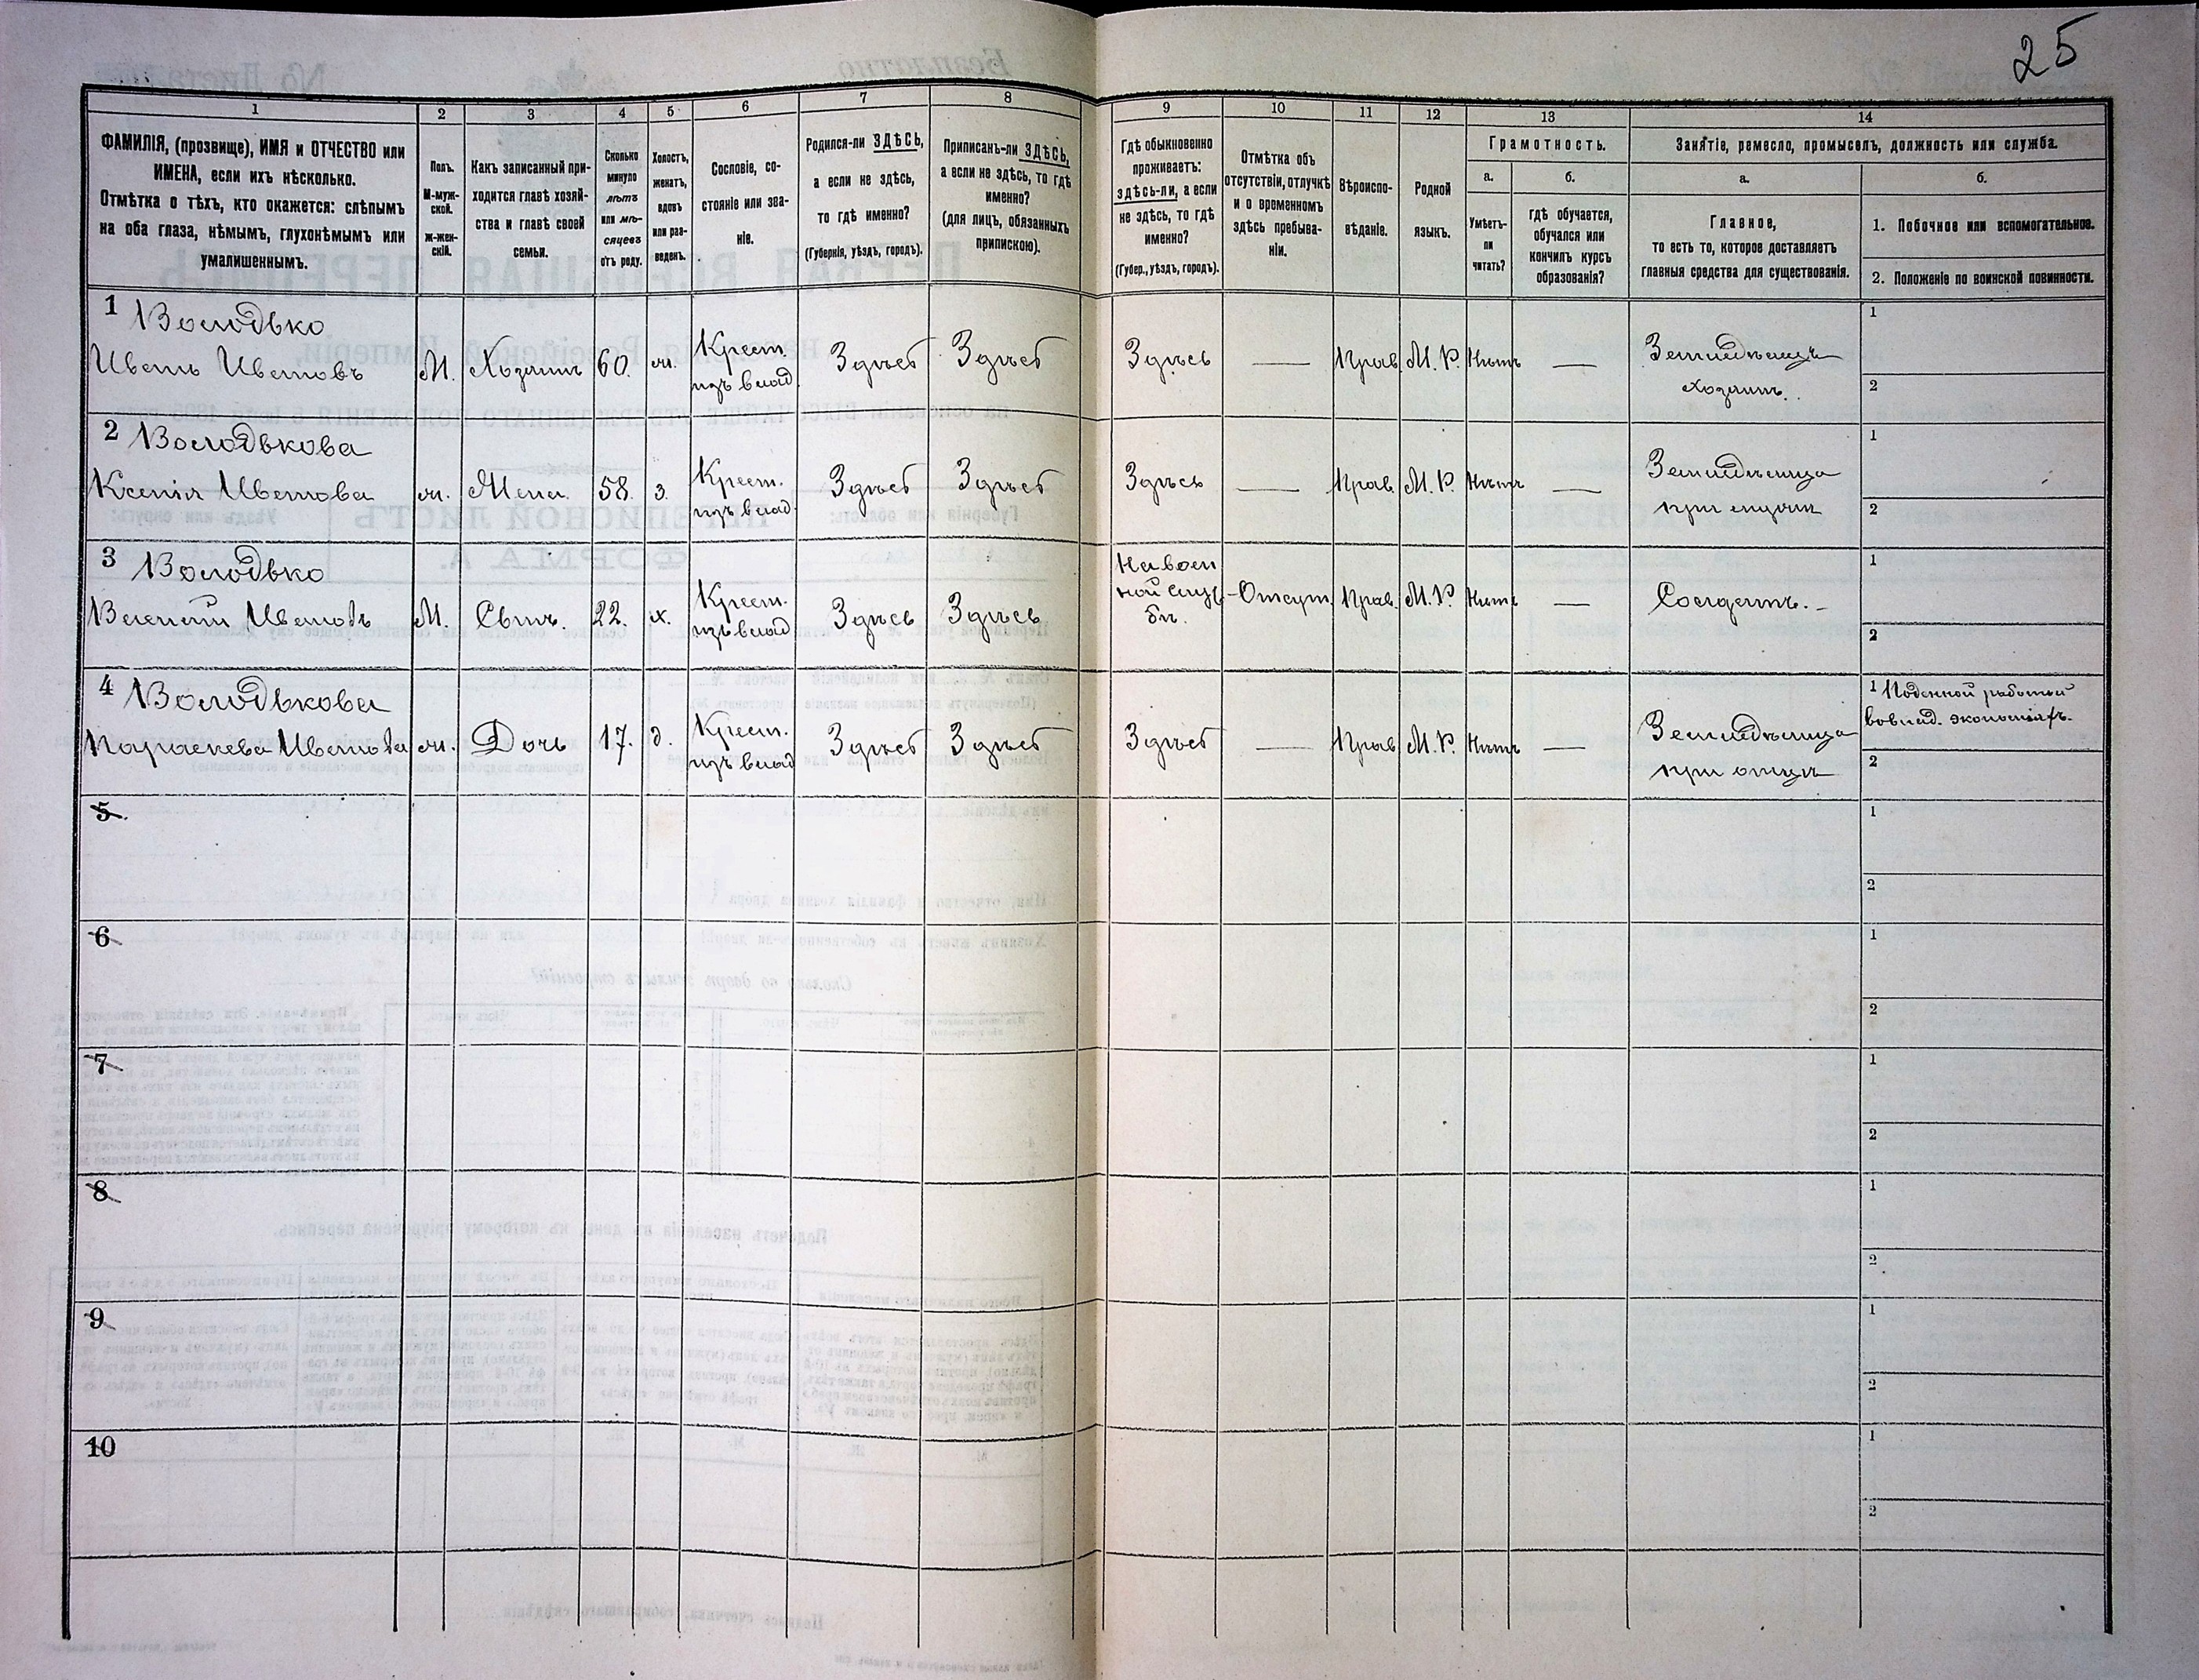 25
1
2
3
4
5
6
7
8
9
10
11
12
13
14
ФАМИЛІЯ, (прозвище), ИМЯ и ОТЧЕСТВО или
ИМЕНА, если ихъ нѣсколько.
Отмѣтка о тѣхъ, кто окажется: слѣпымъ
на оба глаза, нѣмымъ, глухонѣмымъ или
умалишеннымъ.
Полъ.
М-муж-
ской.
ж-жен-
скій.
Какъ записанный при-
ходится главѣ хозяй-
ства и главѣ своей
семьи.
Сколько
минуло
лѣтъ
или мѣ-
сяцевъ
отъ роду.
Холостъ,
женатъ,
вдовъ
или раз-
веденъ.
Сословіе, со-
стояніе или зва-
ніе.
Родился-ли ЗДѢСЬ,
а если не здѣсь,
то гдѣ именно?
(Губернія, уѣздъ, городъ).
Приписанъ-ли ЗДѢСЬ,
а если не здѣсь, то гдѣ
именно?
(для лицъ, обязанныхъ
припискою).
Гдѣ обыкновенно
проживаетъ:
здѣсь-ли, а если
не здѣсь, то гдѣ
именно?
(Губер., уѣздъ, городъ).
Отмѣтка объ
отсутствіи, отлучкѣ
и о временномъ
здѣсь пребыва-
ніи.
Вѣроиспо-
вѣданіе.
Родной
языкъ.
Грамотность.
а.
Умѣетъ-
ли
читать?
б.
гдѣ обучается,
обучался или
кончилъ курсъ
образованія?
Занятіе, ремесло, промыселъ, должность или служба.
а.
Главное,
то есть то, которое доставляетъ
главныя средства для существованія.
б.
1. Побочное или вспомогательное.
2. Положеніе по воинской повинности.
1 Володько
Иванъ Ивановъ
М.
Хозяинъ
60.
ж.
Крест.
изъ влад.
Здѣсь
Здѣсь
Здѣсь
—
Прав.
М. Р.
Нѣтъ
—
Земледѣлецъ
хозяинъ.
1
2
2 Володькова
Ксенія Иванова
ж.
Жена
58.
з.
Крест.
изъ влад.
Здѣсь
Здѣсь
Здѣсь
—
Прав.
М. Р.
Нѣтъ
—
Земледѣлица
при мужѣ
1
2
3 Володько
Василій Ивановъ
М.
Сынъ.
22.
х.
Крест.
изъ влад
Здѣсь
Здѣсь
На воен
ной служ
бѣ.
Отсут.
Прав.
М. Р.
Нѣтъ
—
Солдатъ.
1
2
4 Володькова
Параскева Иванова
ж.
Дочь
17.
д.
Крест.
изъ влад
Здѣсь
Здѣсь
Здѣсь
—
Прав
М. Р.
Нѣтъ
—
Земледѣлица
при отцѣ
1 Поденной работой
во влад. экономіяхъ.
2
5
1
2
6
1
2
7
1
2
8
1
2
9
1
2
10
1
2